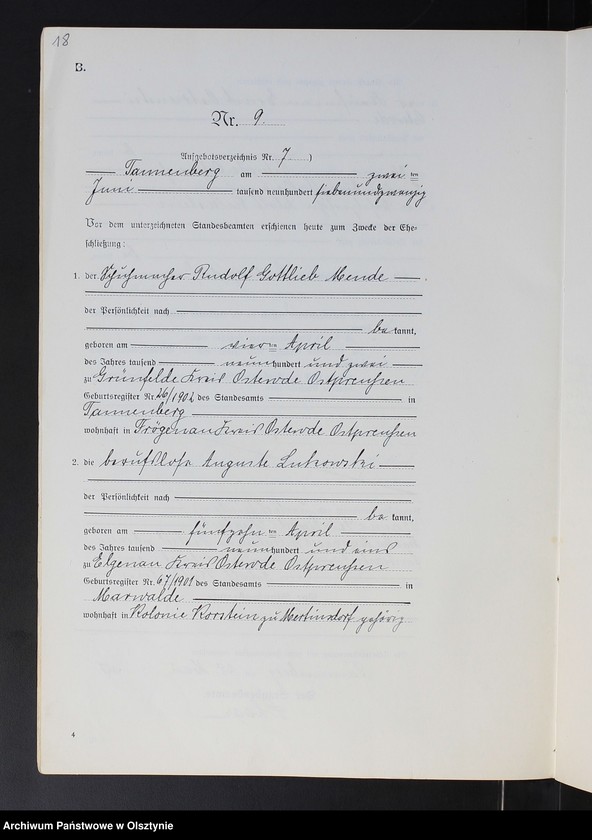 18
B.
Nr. 9.
Aufgebotsverzeichnis Nr. 7 )
Tannenberg am zwei ten
Juni tausend neunhundert siebenundzwanzig
Vor dem unterzeichneten Standesbeamten erschienen heute zum Zwecke der Ehe-
schließung:
1. der Schuhmacher Rudolf Gottlieb Mende
der Persönlichkeit nach
be kannt,
geboren am vier ten April
des Jahres tausend neun hundert und zwei
zu Grünfelde Kreis Osterode Ostpreußen
Geburtsregister Nr. 26/1902 des Standesamts in
Tannenberg
wohnhaft in Frögenau Kreis Osterode Ostpreußen
2. die berufslose Auguste Lukowski
der Persönlichkeit nach
be kannt,
geboren am fünfzehn ten April
des Jahres tausend neun hundert und eins
zu Elgenau Kreis Osterode Ostpreußen
Geburtsregister Nr. 67/1901 des Standesamts in
Marwalde
wohnhaft in Kolonie Korstein zu Mertinsdorf gehörig
4
Archiwum Państwowe w Olsztynie